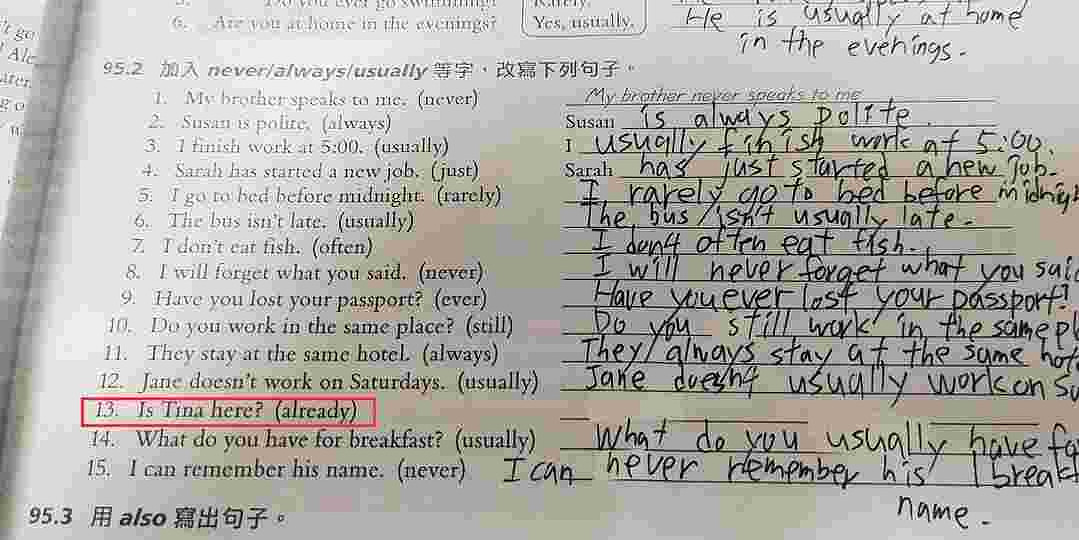 't go
Ale
ater.
go
Do you ever go swimming? Rarely.
6. Are you at home in the evenings? Yes, usually. He is usually at home
in the evenings.
95.2 加入 never/always/usually 等字、改寫下列句子。
1. My brother speaks to me. (never) My brother never speaks to me
2. Susan is polite. (always) Susan is always polite.
3. I finish work at 5:00. (usually) I usually finish work at 5:00.
4. Sarah has started a new job. (just) Sarah has just started a new job.
5. I go to bed before midnight. (rarely) I rarely go to bed before midnigh
6. The bus isn't late. (usually) The bus isn't usually late.
7. I don't eat fish. (often) I don't often eat fish.
8. I will forget what you said. (never) I will never forget what you said
9. Have you lost your passport? (ever) Have you ever lost your passport?
10. Do you work in the same place? (still) Do you still work in the same pl
11. They stay at the same hotel. (always) They always stay at the same hote
12. Jane doesn't work on Saturdays. (usually) Jane doesn't usually work on Sa
13. Is Tina here? (already)
14. What do you have for breakfast? (usually) What do you usually have fo
15. I can remember his name. (never) I can never remember his breakf
name.
95.3 用 also 寫出句子。